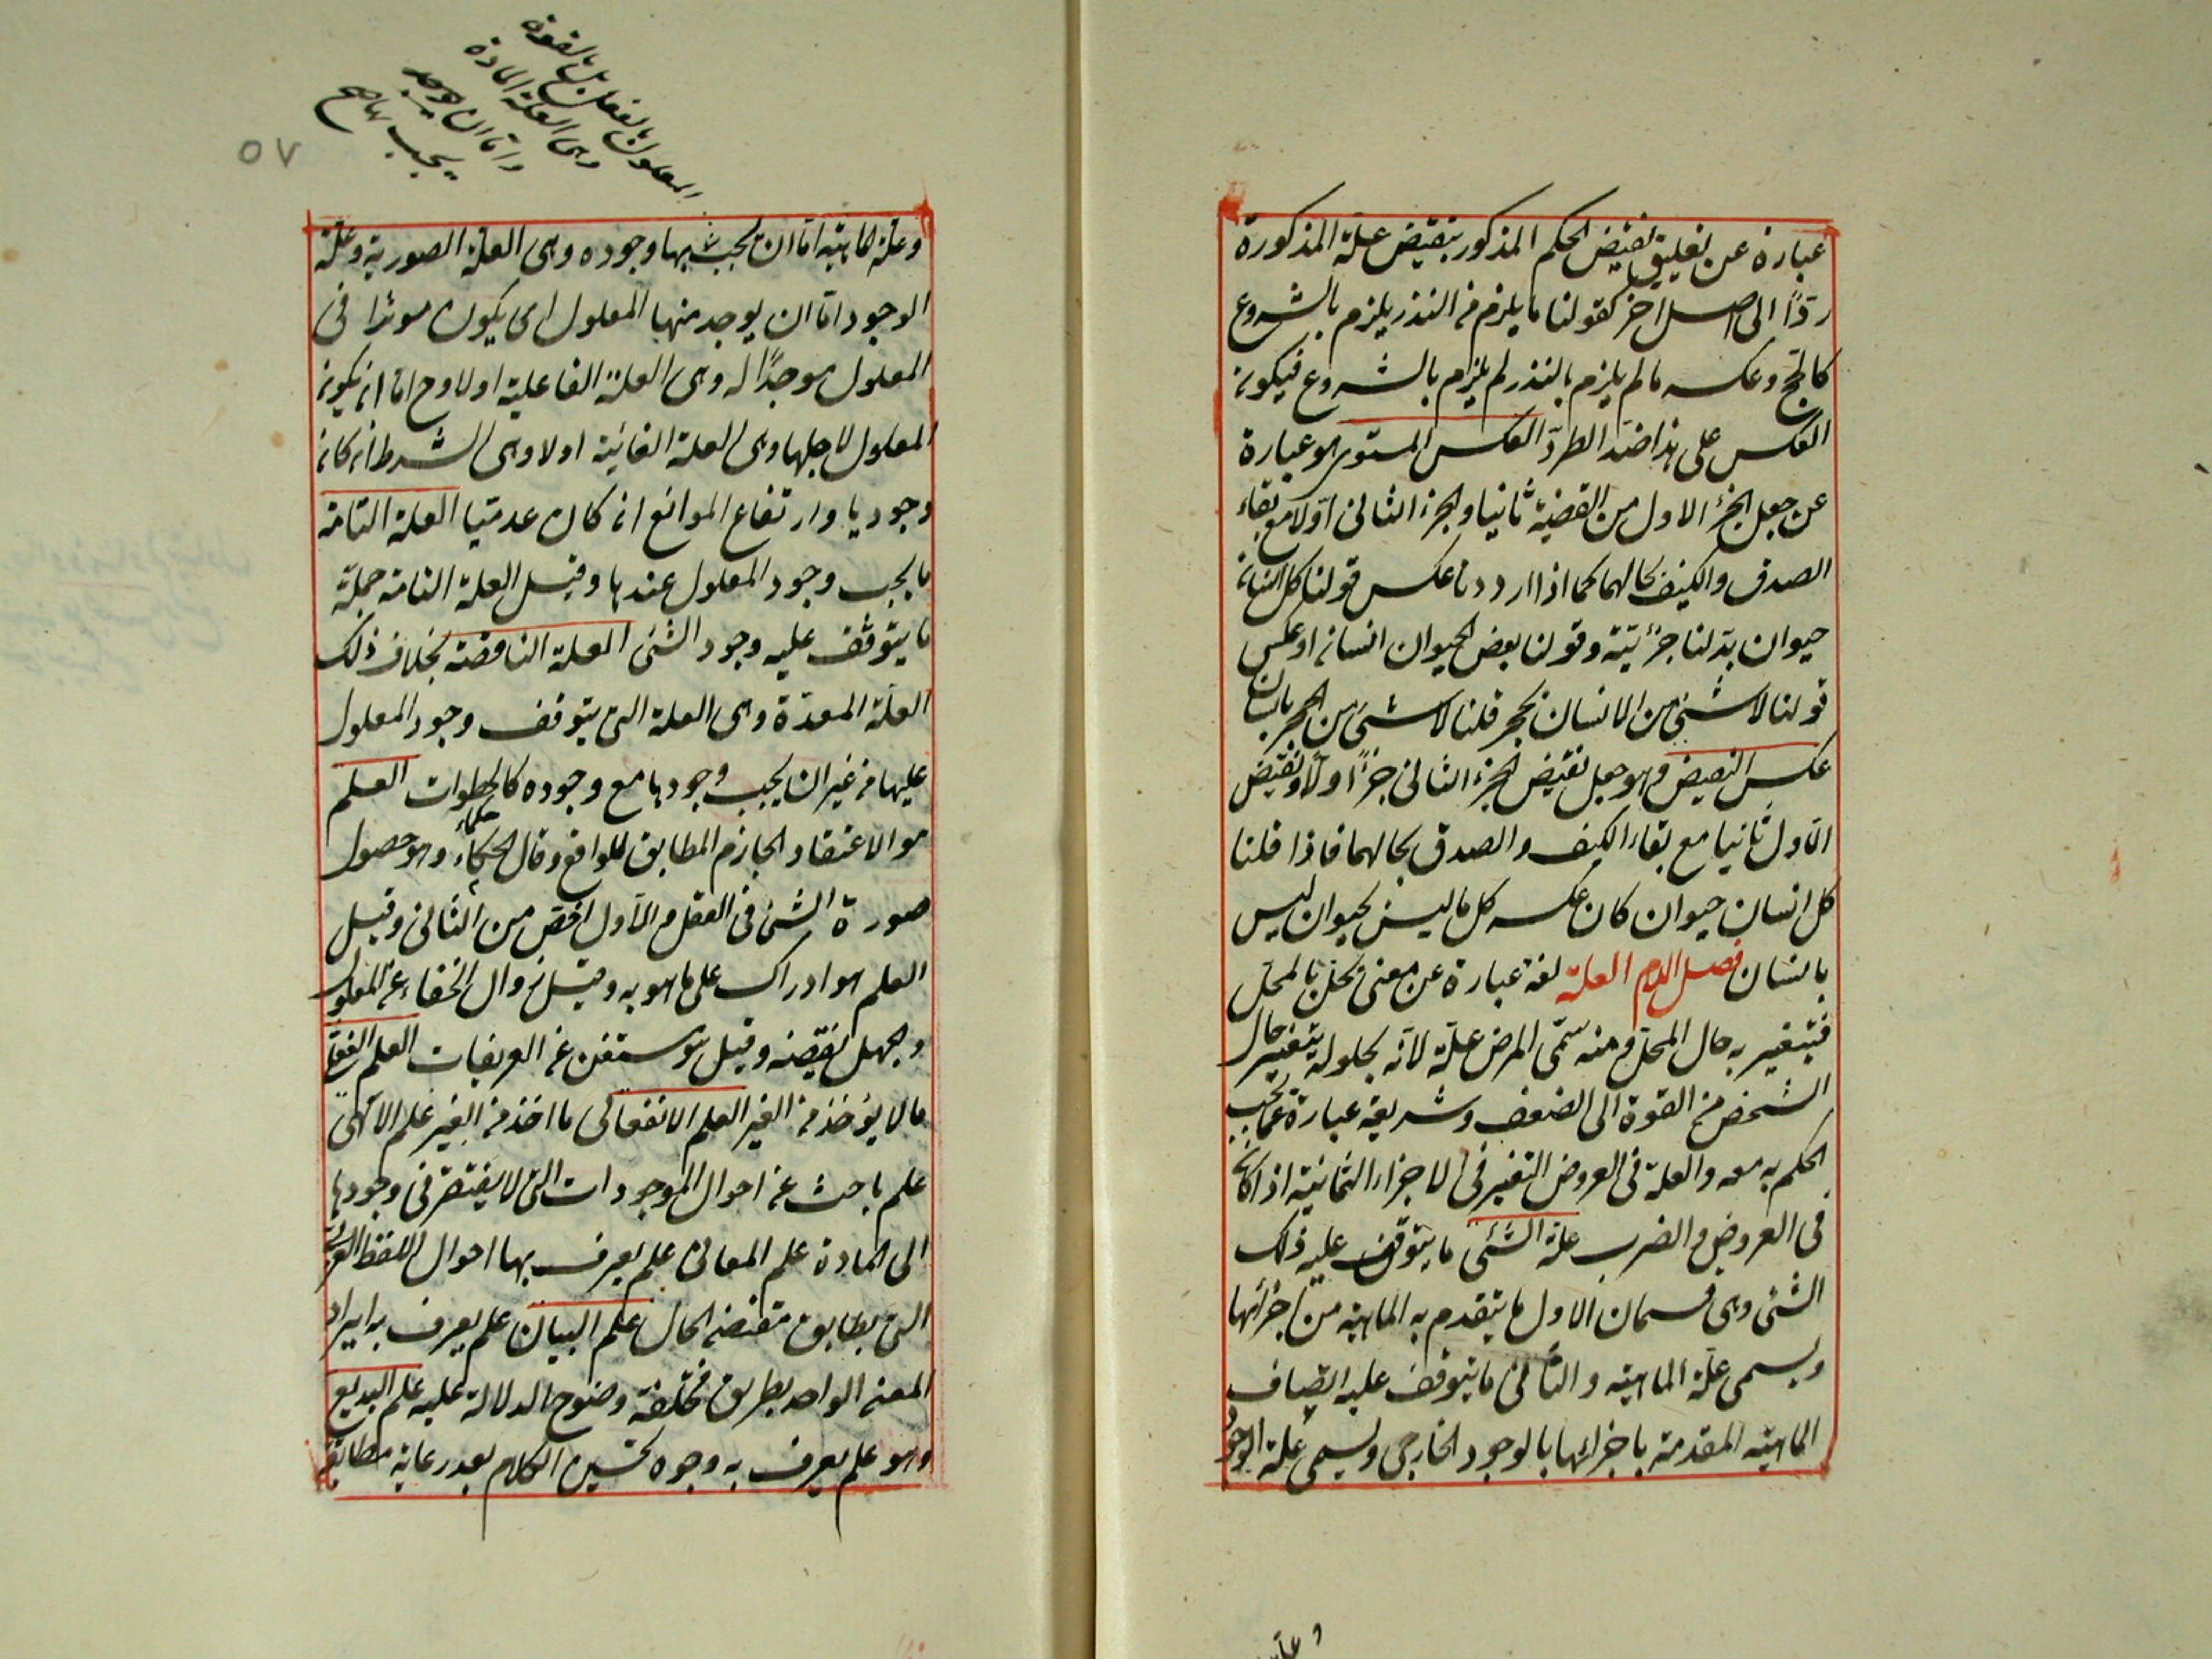 عبارة عن تعليق نقيض الحكم المذكور بنقيض علة المذكورة
ردًا الى اصل اخر كقولنا ما يلزم من النذر يلزم بالشروع
كالحج وعكسه ما لم يلزم بالنذر لم يلزم بالشروع فيكون
العكس على هذا ضد الطرد العكس المستوى هو عبارة
عن جعل الجزء الاول من القضية ثانيا والجزء الثانى اولا مع بقاء
الصدق والكيف بحالهما كما اذا اردنا عكس قولنا كل انسان
حيوان بدلنا جزئيته وقولنا بعض الحيوان انسان او عكس
قولنا لا شئ من الانسان بحجر قلنا لا شئ من الحجر بانسان
عكس النقيض وهو جعل نقيض الجزء الثانى جزءًا اولا ونقيض
الاول ثانيا مع بقاء الكيف والصدق بحالهما فاذا قلنا
كل انسان حيوان كان عكسه كل ما ليس بحيوان ليس
بانسان فصل اللام العلة لغة عبارة عن معنى يحل بالمحل
فيتغير به حال المحل ومنه سمى المرض علة لانه بحلوله يتغير حال
الشخص من القوة الى الضعف وشريعة عبارة عما يجب
الحكم به معه والعلة فى العروض التغير فى الاجزاء الثمانية اذا كان
فى العروض والضرب علة الشئ ما يتوقف عليه ذلك
الشئ وهى قسمان الاول ما يتقدم به الماهية من اجزائها
ويسمى علة الماهية والثانى ما يتوقف عليه اتصاف
الماهية المقدمة باجزائها بالوجود الخارجى ويسمى علة الوجود
المعلول بالفعل بل بالقوة
وهى العلة المادة
واما ان يوجد
يجب بها صح
٥٧
وعلة الماهية اما ان يجب بها وجوده وهى العلة الصورية وعلة
الوجود اما ان يوجد منها المعلول اى يكون موثرا فى
المعلول موجدًا له وهى العلة الفاعلية اولا وح اما ان يكون
المعلول لاجلها وهى العلة الغائية اولا وهى الشرط ان كان
وجوديا وارتفاع الموانع ان كان عدميا العلة التامة
ما يجب وجود المعلول عندها وقيل العلة التامة جملة
ما يتوقف عليه وجود الشئ العلة الناقصة بخلاف ذلك
العلة المعدة وهى العلة التى يتوقف وجود المعلول
عليها من غير ان يجب وجودها مع وجوده كالخطوات العلم
هو الاعتقاد الجازم المطابق للواقع وقال الحكماء وهو حصول
صورة الشئ فى العقل والاول اخص من الثانى وقيل
العلم هو ادراك على ما هو به وقيل زوال الخفاء عن المعلوم
والجهل نقيضه وقيل هو مستغن عن التعريفات العلم الفعلى
ما لا يؤخذ من الغير العلم الانفعالى ما اخذ من الغير علم الالهى
علم باحث عن احوال الموجودات التى لا يفتقر فى وجودها
الى المادة علم المعانى علم يعرف بها احوال اللفظ العربى
التى يطابق مقتضى الحال علم البيان علم يعرف به ايراد
المعنى الواحد بطريق مختلفة وضوح الدلالة عليه علم البديع
وهو علم يعرف به وجوه تحسين الكلام بعد رعاية مطابقة